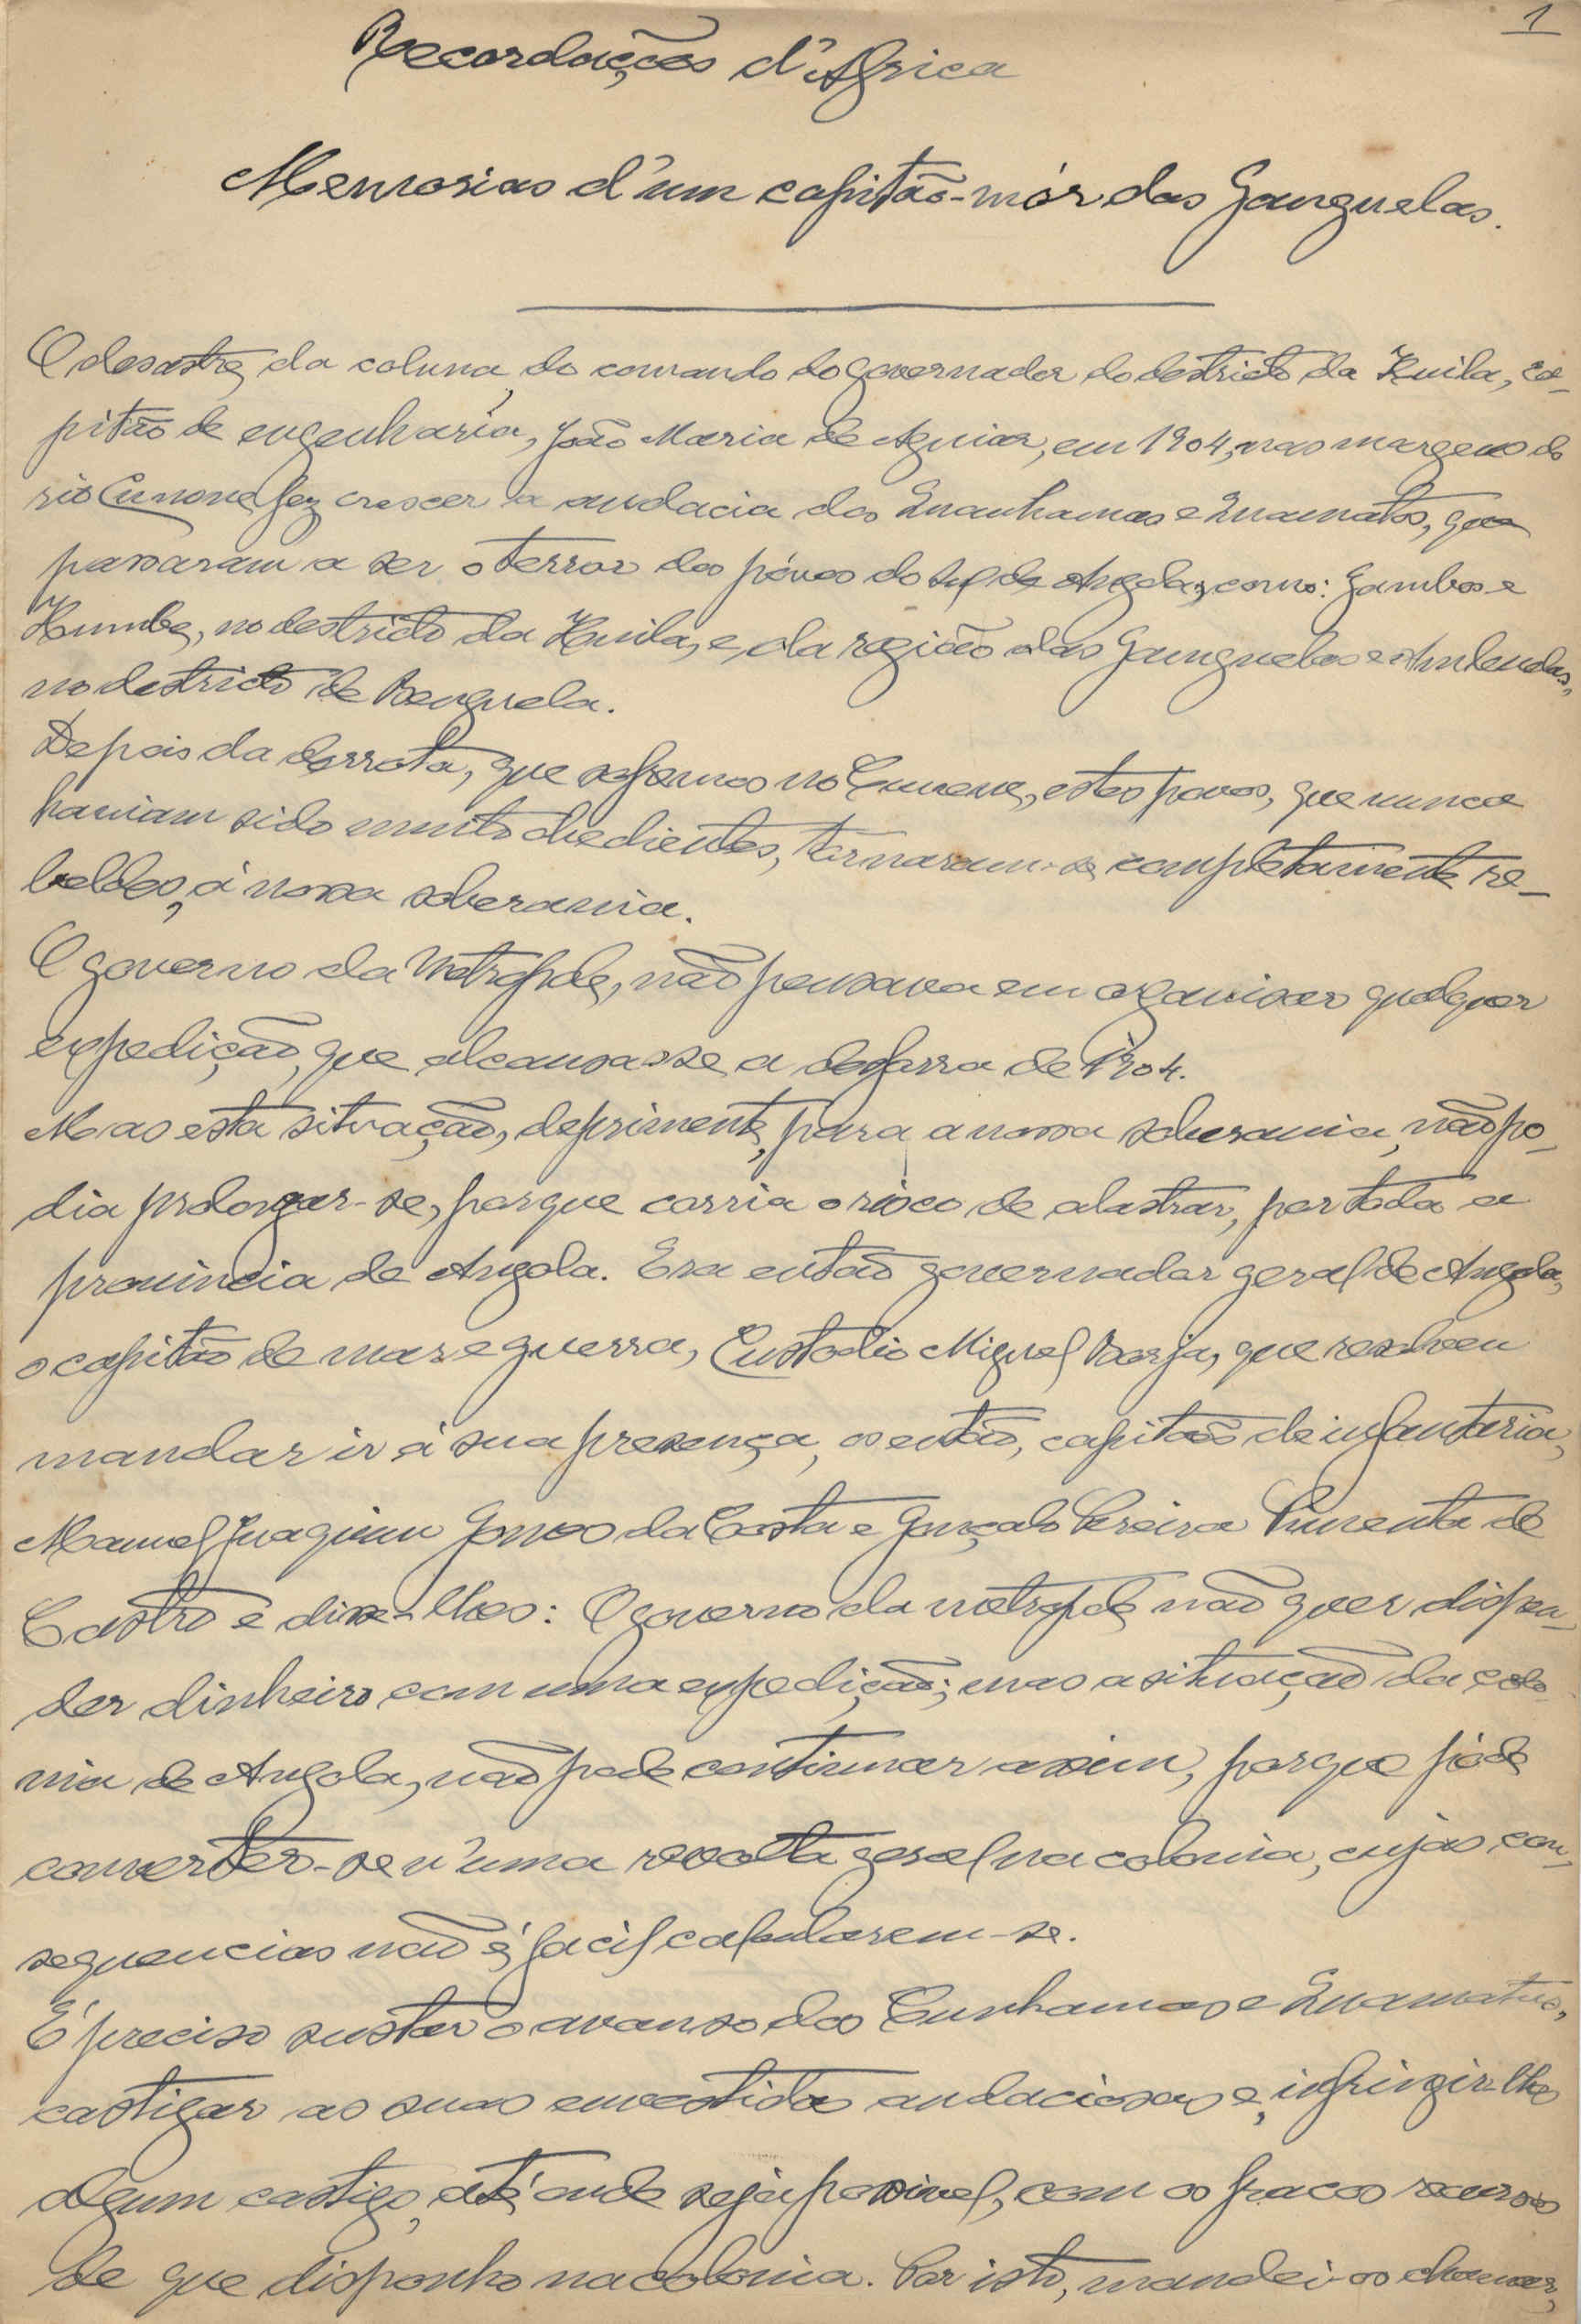 1
Recordações d'Africa
Memorias d'um capitão-mór das Ganguelas.
O desastre, da coluna, do comando do Governador do destricto da Huila, ca-
pitão de engenharia, João Maria de Aguiar, em 1904, nas margens do
rio Cunene fez crescer a audacia dos Quanhamas e Quamatos, que
passaram a ser o terror dos póvos do sul de Angola, como: Gambos e
Humbe, no destricto da Huila, e, da região das Ganguelas e Ambuelas,
no destricto de Benguela.
Depois da derrota, que sofremos no Cunene, estes povos, que nunca
haviam sido muito obedientes, tornaram-se, completamente re-
beldes, á nossa soberania.
O governo da Metropole, não pensava em organisar qualquer
expedição, que alcansasse a desforra de 1904.
Mas esta situação, deprimente, para a nossa soberania, não po-
dia prolongar-se, porque corria o risco de alastrar, por toda a
provincia de Angola. Era então governador geral de Angola,
o capitão de mar e guerra, Custodio Miguel Borja, que resolveu
mandar ir á sua presença, os então, capitão de infantaria,
Manuel Joaquim Gomes da Costa e Gonçalo Pereira Pimenta de
Castro e disse-lhes: O governo da metropole não quer dispen-
der dinheiro com uma expedição; mas a situação da colo-
nia de Angola, não pode continuar assim, porque póde
converter-se n'uma revolta geral na colonia, cujas con-
sequencias não é, facil calcularem-se.
É preciso sustar o avanso dos Cunhamas e Quamatos,
castigar as suas envestidas audaciosas e, infringir-lhes
algum castigo, até, onde seja possivel, com os fracos recursos
de que disponho na colonia. Por isto, mandei-os chamar,